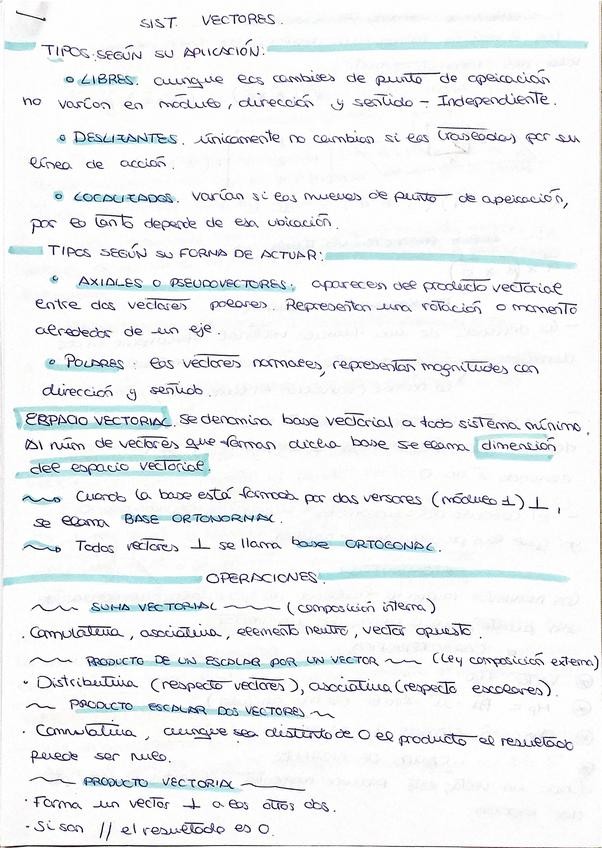 SIST. VECTORES.
TIPOS SEGÚN SU APLICACIÓN:
o LIBRES. aunque los cambies de punto de aplicación
no varían en módulo, dirección y sentido - Independiente.
o DESLIZANTES. únicamente no cambian si los trasladas por su
línea de acción.
o LOCALIZADOS. varían si los mueves de punto de aplicación,
por lo tanto depende de esa ubicación.
TIPOS SEGÚN SU FORMA DE ACTUAR:
o AXIALES O PSEUDOVECTORES: aparecen del producto vectorial
entre dos vectores polares. Representan una rotación o momento
alrededor de un eje.
o POLARES: los vectores normales, representan magnitudes con
dirección y sentido.
ESPACIO VECTORIAL. se denomina base vectorial a todo sistema mínimo.
Al núm de vectores que forman dicha base se llama dimensión
del espacio vectorial.
Cuando la base está formada por dos versores (módulo 1) ⊥,
se llama BASE ORTONORMAL.
Todos vectores ⊥ se llama base ORTOGONAL.
OPERACIONES.
SUMA VECTORIAL (composición interna)
· Conmutativa, asociativa, elemento neutro, vector opuesto.
PRODUCTO DE UN ESCALAR POR UN VECTOR (Ley composición externa)
· Distributiva (respecto vectores), asociativa (respecto escalares).
PRODUCTO ESCALAR DOS VECTORES
· Conmutativa, aunque sea distinto de 0 el producto el resultado
puede ser nulo.
PRODUCTO VECTORIAL
· Forma un vector ⊥ a los otros dos.
· Si son // el resultado es 0.